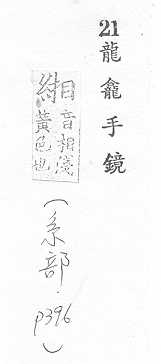 21 龍龕手鏡
緗 音相淺
黃色也
(系部.p396)